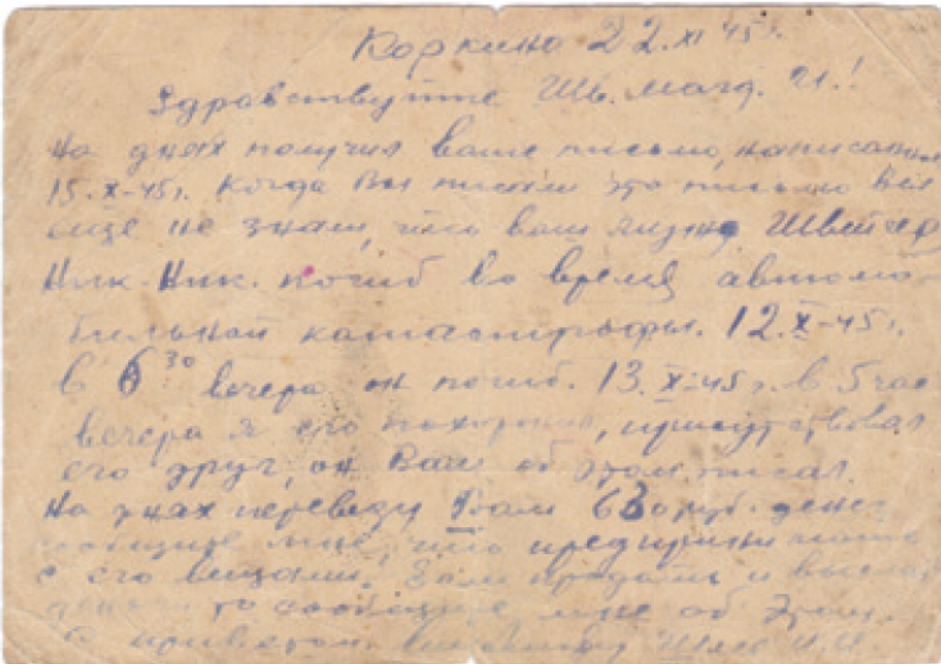 Коркино 22.XI 45 г.
Здравствуйте Шв. Магд. И.!
На днях получил ваше письмо, написанное
15.X-45 г. Когда Вы писали это письмо Вы
еще не знали, что ваш Швейцер
Ник. Ник. погиб во время автомо-
бильной катастрофы. 12.X-45 г.
в 6 30 вечера он погиб. 13.X-45 г. в 5 час
вечера я его похоронил, присутствовал
его друг, он Вам об этом писал.
На днях переведу Вам 630 руб. денег
сообщите мне, что предпринимать
с его вещами. Если продать и выслать
деньги то сообщите мне об этом.
С приветом. И.И.